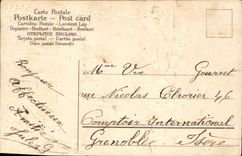 Carte Postale
Postkarte — Post card
Cartolina Postale — Levelezö Lap
Dopisnice — Brefkort — Briefkaart — Brevkort
ОТКРЫТОЕ ПИСЬМО.
Tarjeta postal — Cartão postal
Union postale Universelle
Bonjour
Affectueux
Mme Vve Gourret
rue Nicolas Chorier 46
Comptoir International
Grenoble Isère